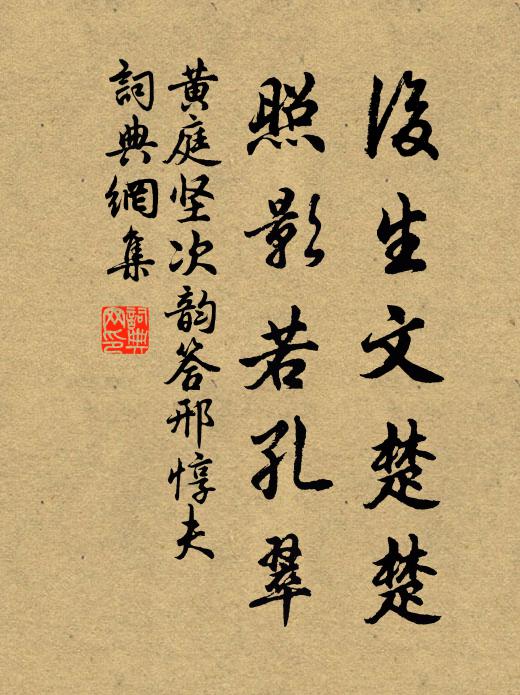 後生文楚楚
照影若孔翠
黄庭坚次韵答邢惇夫
詞典網集
詞典
网印